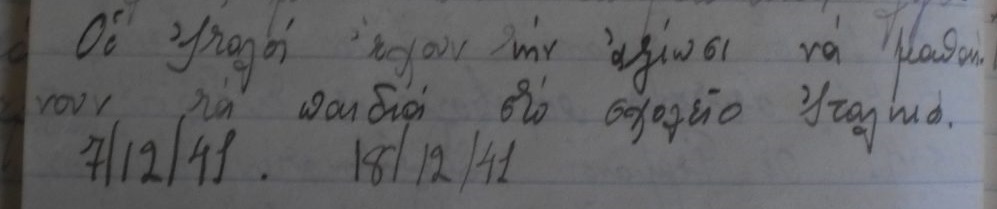 Οἱ Ἰταλοί ἔχουν τήν ἀξίωσι νά μαθαί-
νουν τά παιδιά στό σχολεῖο Ἰταλικά.
7/12/41. 18/12/41